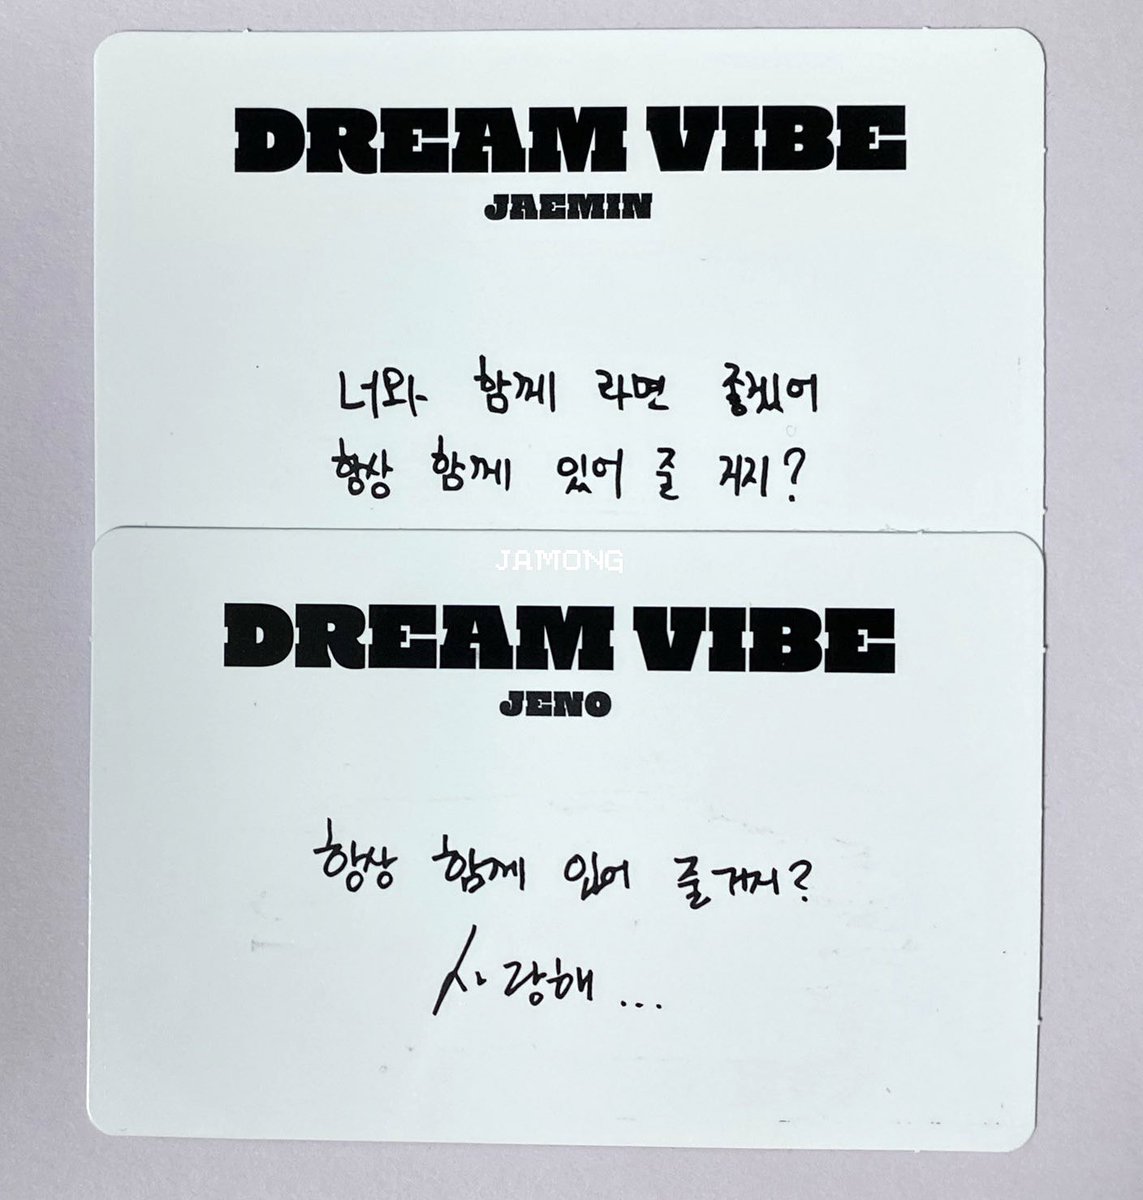 DREAM VIBE
JAEMIN
너와 함께 라면 좋겠어
항상 함께 있어 줄 거지?
JAMONG
DREAM VIBE
JENO
항상 함께 있어 줄거지?
사랑해...